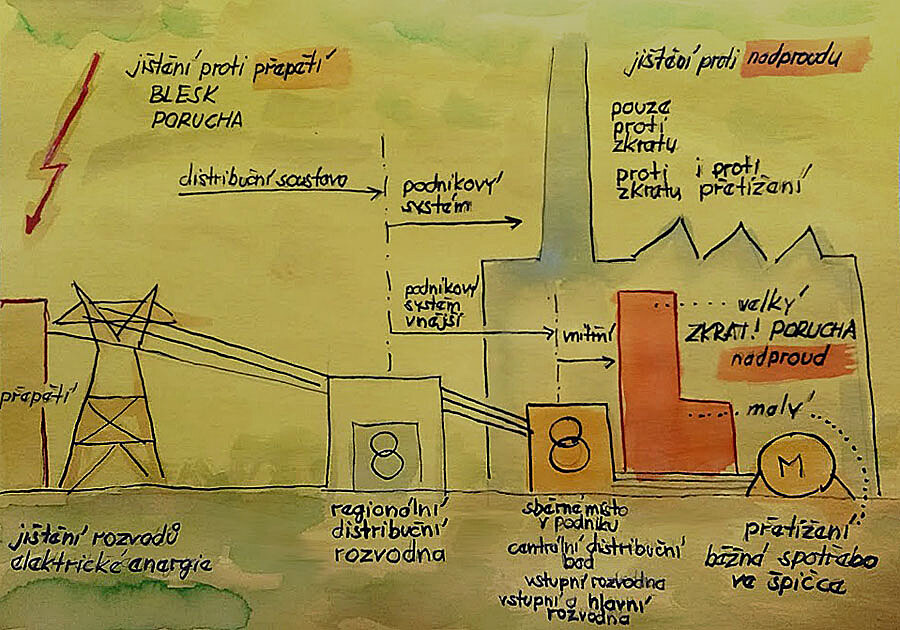 jištění proti přepětí
BLESK
PORUCHA
distribuční soustava
podnikový
systém
podnikový
systém
vnější
vnitřní
jištění proti nadproudu
pouze
proti
zkratu
proti
zkratu
i proti
přetížení
velký
ZKRAT! PORUCHA
nadproud
malý
M
přepětí
jištění rozvodů
elektrické energie
regionální
distribuční
rozvodna
sběrné místo
v podniku
centrální distribuční
bod
vstupní rozvodna
vstupní a hlavní
rozvodna
přetížení
běžná spotřeba
ve špičce